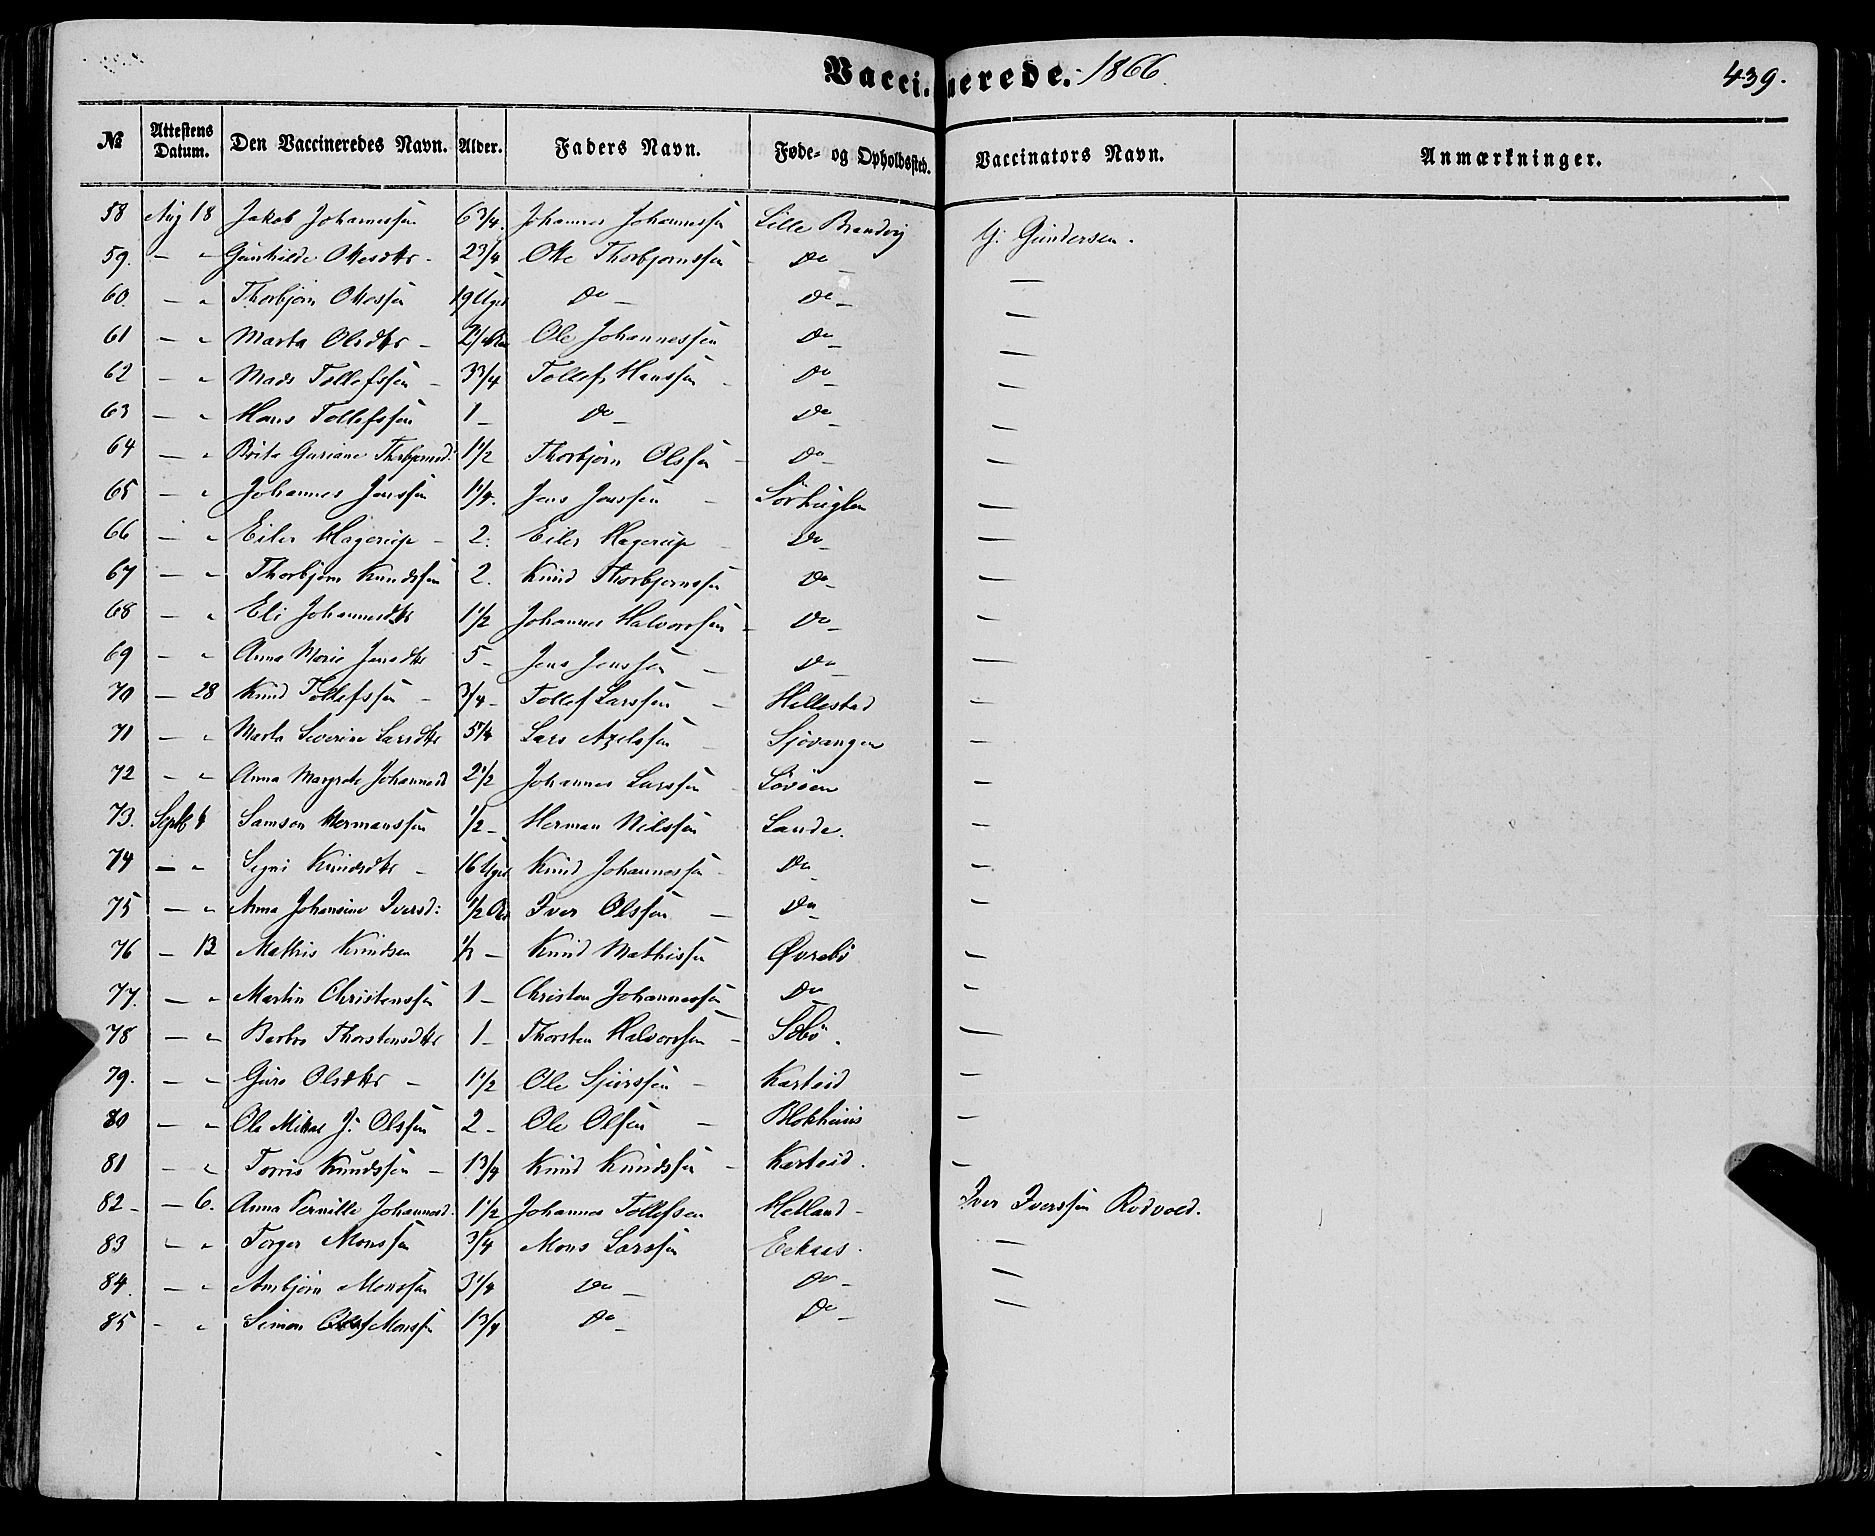 Vaccinerede. 1866.
439.
№ Attestens Datum. Den Vaccineredes Navn. Alder. Faders Navn. Føde- og Opholdssted. Vaccinators Navn. Anmærkninger.
58 Aug 18 Jakob Johannessen 6 3/4. Johannes Johannessen Lille Brandvig G. Gundersen.
59. — " Gunhilde Ottesdtr - 2 3/4 Otte Thorbjørnssen Do — —
60. — " Thorbjørn Ottessen 19 Uger Do — Do — —
61 — " Marta Olsdtr — Ole Johannessen Do — —
62 — " Mads Tollefssen — 3 3/4 Tollef Hanssen Do — —
63 — " Hans Tollefssen 1 — Do — Do —
64 — " Brita Guriane Thorbjørnsd: 1 1/2 Thorbjørn Olssen — Do — —
65 — " Johannes Jenssen 1 1/4. Jens Jenssen — Sørhuglen —
66 — " Eiler Hagerup — 2. Eiler Hagerup Do — —
67 — " Thorbjørn Knudssen 2. Knud Thorbjørnssen Do — —
68 — " Eli Johannesdtr 1 1/2 Johannes Halvorssen — Do — —
69 — " Anna Marie Jensdtr 5 — Jens Jenssen — Do — —
70 — 28 Knud Tollefssen — 3/4 — Tollef Larssen — Hillestad —
71 — " Marta Severine Larsdtr 5 1/4 Lars Axelssen — Sjovangen —
72 — " Anna Margrete Johannesd 2 1/2 Johannes Larssen — Løvøen —
73. Septb Samson Hermanssen 1/2 — Herman Nilssen Lande. —
74 — " Signi Knudsdtr — 16 Uger Knud Johannessen Do — —
75 — " Anna Johanine Iversd: 1/2 Iver Olssen — Do — —
76 — 13 Mathis Knudsen — Knud Mathissen Øvrebø —
77. — " Martin Christenssen 1 — Christen Johannessen Do —
78 — " Barbro Thorstensdtr 1 — Thorsten Halvorssen — Sæbø. —
79. — " Guro Olsdtr — 1 1/2 Ole Sjurssen — Karteid —
80 — " Ole Mikal J: Olssen 2 — Ole Olsen — Blokhuus —
81 — " Torris Knudssen — 1 3/4 Knud Knudssen — Karteid. —
82 — — 6. Anna Pernille Johannesd. 1 1/2 Johannes Tollefsen Helland — Iver Iverssen Rødvold.
83 — " Torger Monssen 3/4 Mons Larssen Eekaas. —
84. — " Ambjørn Monssen 3 1/4 Do — Do — —
85 — " Simon Monssen 1 3/4 Do — Do — —